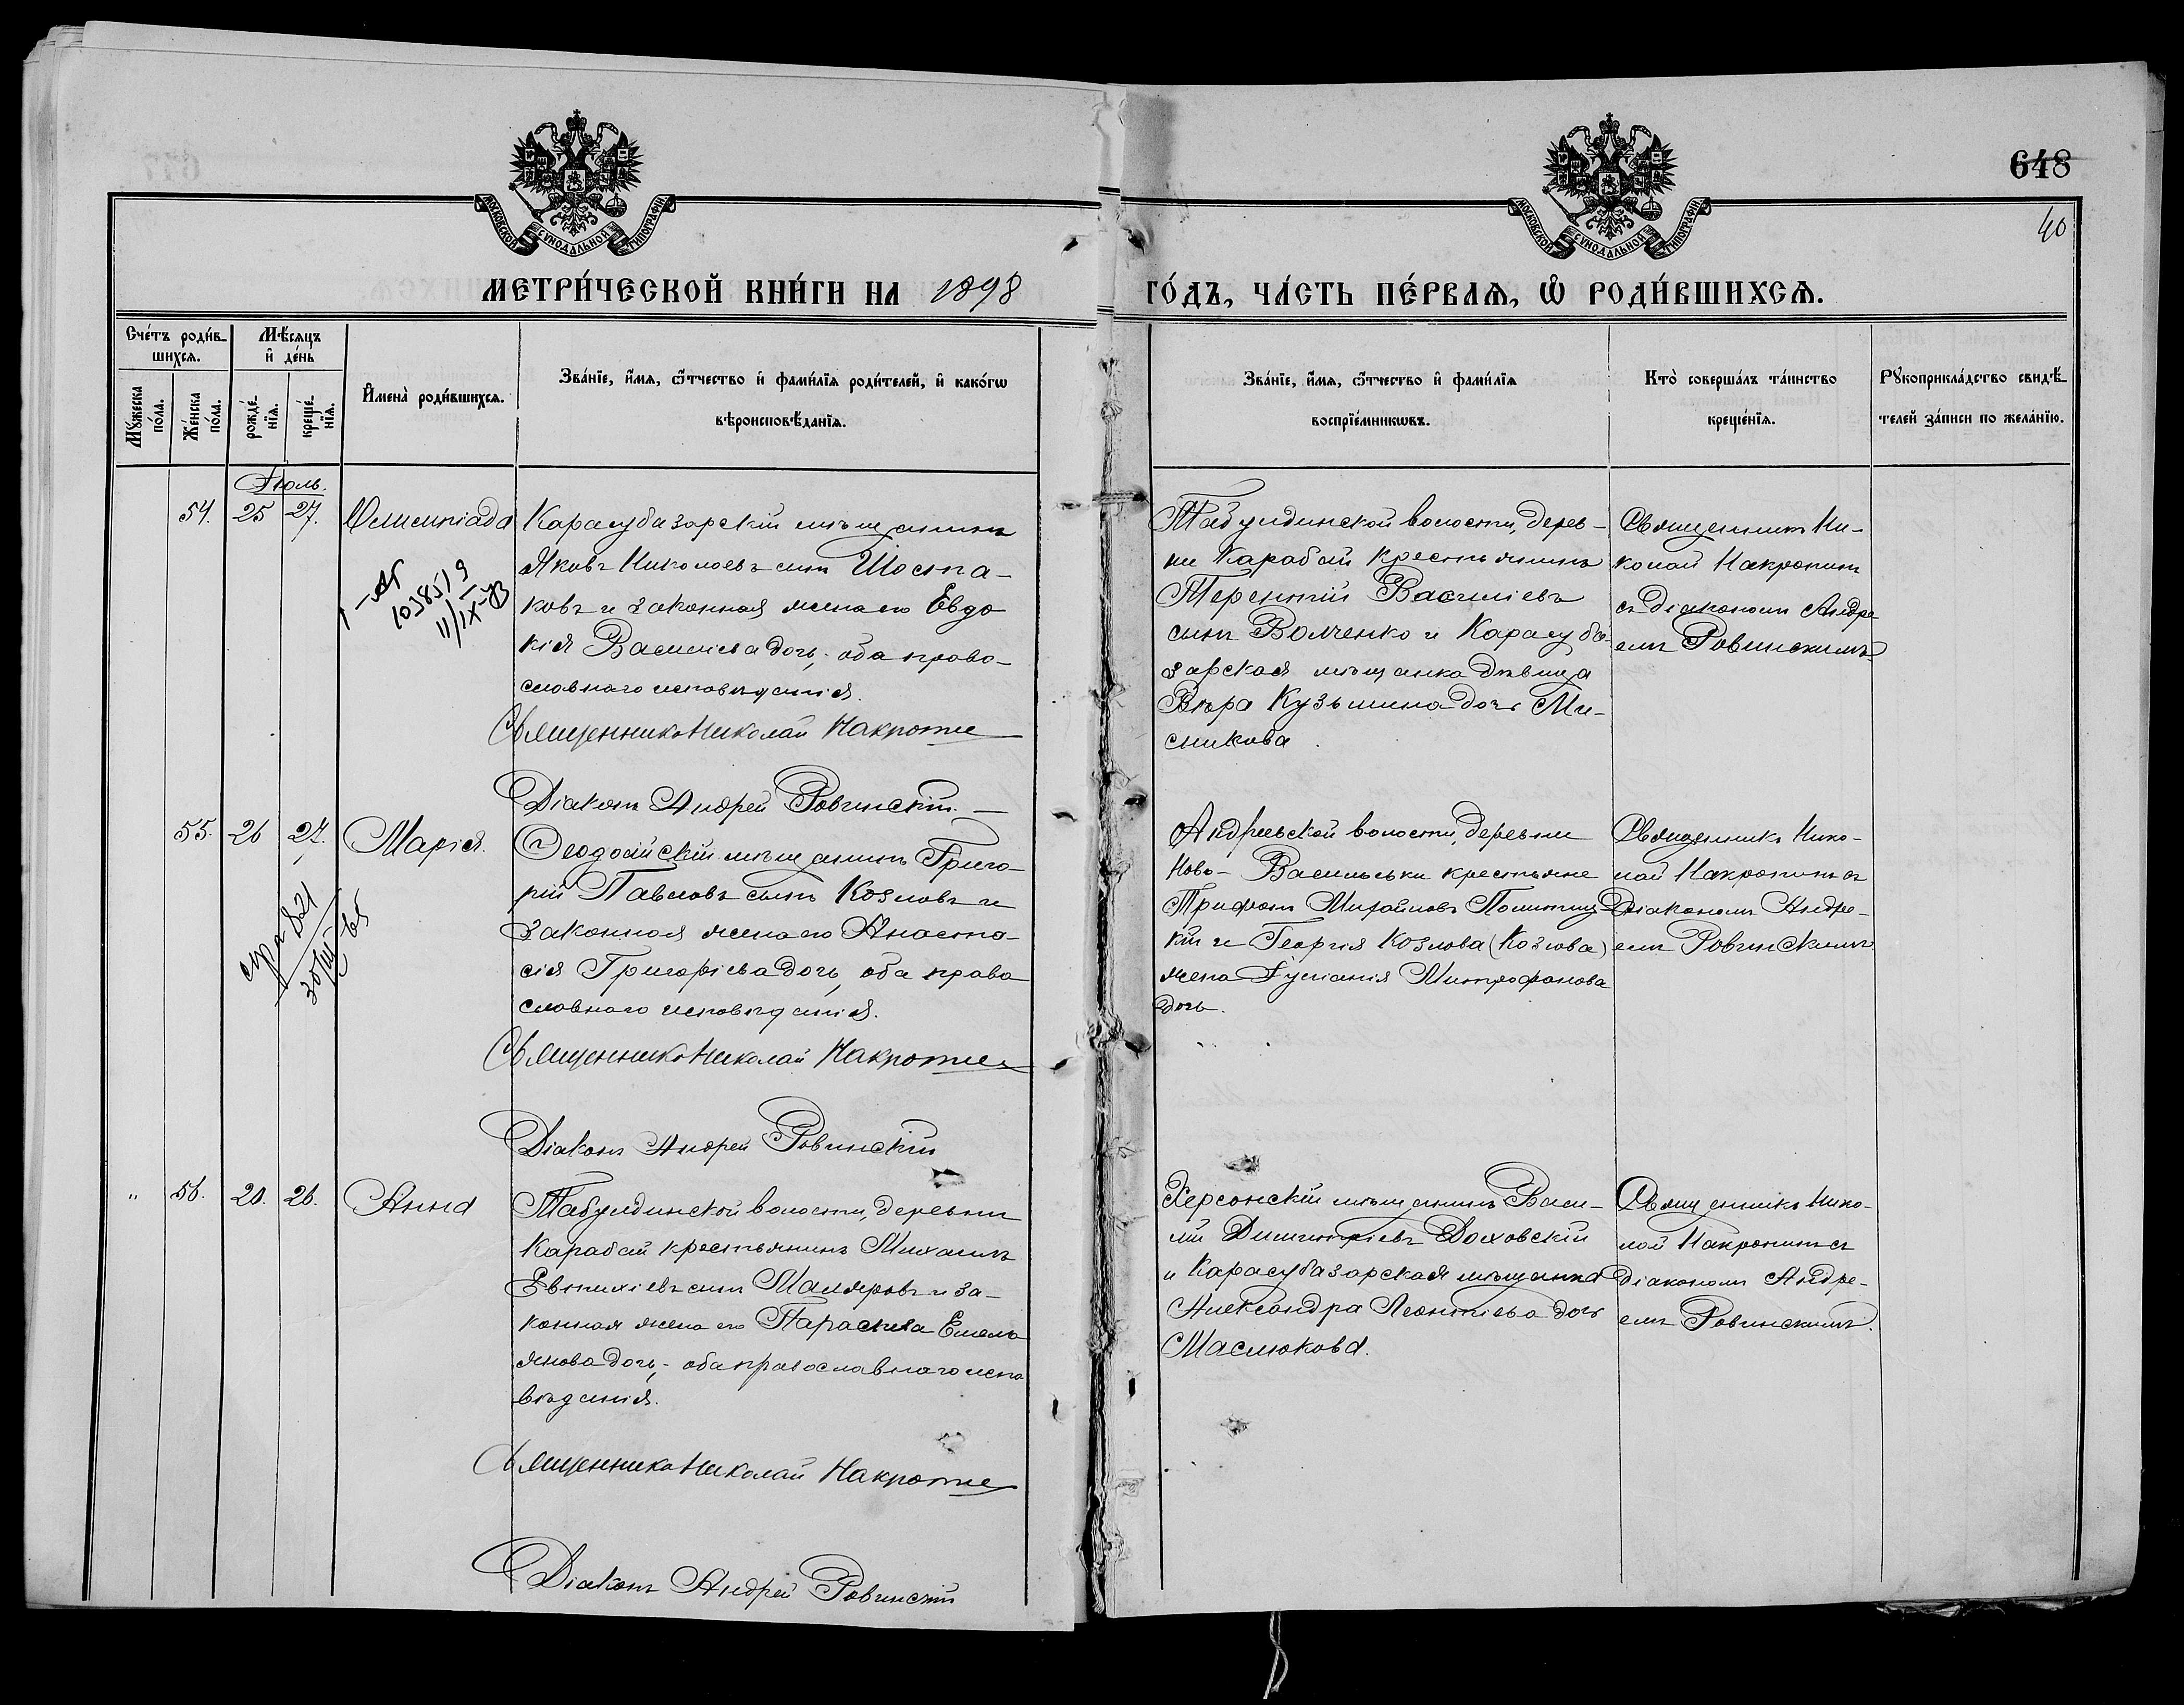 648
40
МОСКОВСКОЙ СѴНОДАЛЬНОЙ ТИПОГРАФІИ
МОСКОВСКОЙ СѴНОДАЛЬНОЙ ТИПОГРАФІИ
МЕТРИ́ЧЕСКОЙ КНИ́ГИ НА 1898
ГО́ДЪ, ЧА́СТЬ ПЕ́РВАѦ, Ѡ҆ РОДИ́ВШИХСѦ.
Сче́тъ роди́в-
шихсѧ.
Мꙋ́жеска
по́ла.
Же́нска
по́ла.
Мѣ́сѧцъ
и҆ де́нь
рожде́-
нїѧ.
креще́-
нїѧ.
И҆мена̀ роди́вшихсѧ.
Зва́нїе, и҆́мѧ, ѻ҆́тчество и҆ фами́лїѧ роди́телей, и҆ како́гѡ
вѣроисповѣ́данїѧ.
Зва́нїе, и҆́мѧ, ѻ҆́тчество и҆ фами́лїѧ
воспрїе́мникѡвъ.
Кто̀ соверша́лъ та́инство
креще́нїѧ.
Рꙋкоприкла́дство свидѣ́-
телей за́писи по жела́нїю.
Іюль.
54. 25 27. Олимпіада
Карасубазарскій мѣщанинъ
Яковъ Николаевъ сынъ Шоста-
ковъ и законная жена его Евдо
кія Васильева дочь, оба право-
славнаго исповѣданія.
Священникъ Николай Накропин
Діаконъ Андрей Ровинскій.
Табулдинской волости, дерев-
ни Карабай крестьянинъ
Терентій Василіевъ
сынъ Волченко и Карасуба-
зарская мѣщанка дѣвица
Вѣра Кузьмина дочь Ми-
сникова.
Священникъ Ни-
колай Накропинъ
съ Діакономъ Андре
емъ Ровинскимъ
103851
55. 26 27. Марія.
Ѳеодосійскій мѣщанинъ Григо-
рій Павловъ сынъ Козловъ и
законная жена его Анаста-
сія Григорьева дочь, оба право
славнаго исповѣданія.
Священникъ Николай Накропин
Діаконъ Андрей Ровинскій
Андреевской волости, деревни
Ново-Васильевки крестьяне
Трифонъ Михайловъ
и Георгія Козлова (Козлова)
жена Іуліанія Митрофанова
дочь.
Священникъ Нико-
лай Накропинъ съ
Діакономъ Андре-
емъ Ровинскимъ
" 56. 20. 26. Анна
Табулдинской волости, деревни
Карабай крестьянинъ Михаилъ
Евтихіевъ сынъ Маляровъ и за-
конная жена его Параскева Емель
янова дочь, - оба православнаго испо
вѣданія.
Священникъ Николай Накропин
Діаконъ Андрей Ровинскій
Херсонскій мѣщанинъ Васи-
лій Димитріевъ Доховскій
и Карасубазарская мѣщанка
Александра Леонтіева дочь
Маслюкова.
Священникъ Нико-
лай Накропинъ съ
діакономъ Андре-
емъ Ровинскимъ.